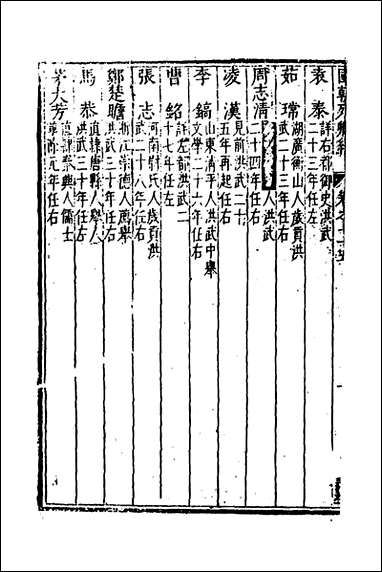 國朝列卿紀 卷之
袁泰 詳右都御史洪武
二十三年任左
茹瑺 湖廣衡山人歲貢洪
武二十三年任右
周志清 人洪武
二十四年任右
凌漢 見前洪武二十
五年再起任右
李鎬 山東清平人洪武中舉
文學二十六年任右
曹銘 詳左都洪武二
十七年任左
張志 河南人歲貢洪
武二十八年任右
鄭楚瞻 浙江崇德人薦舉
洪武三十年任右
馬恭 直隸唐縣人舉人
洪武三十年任右
茅大芳 直隸泰興人儒士
元年任右